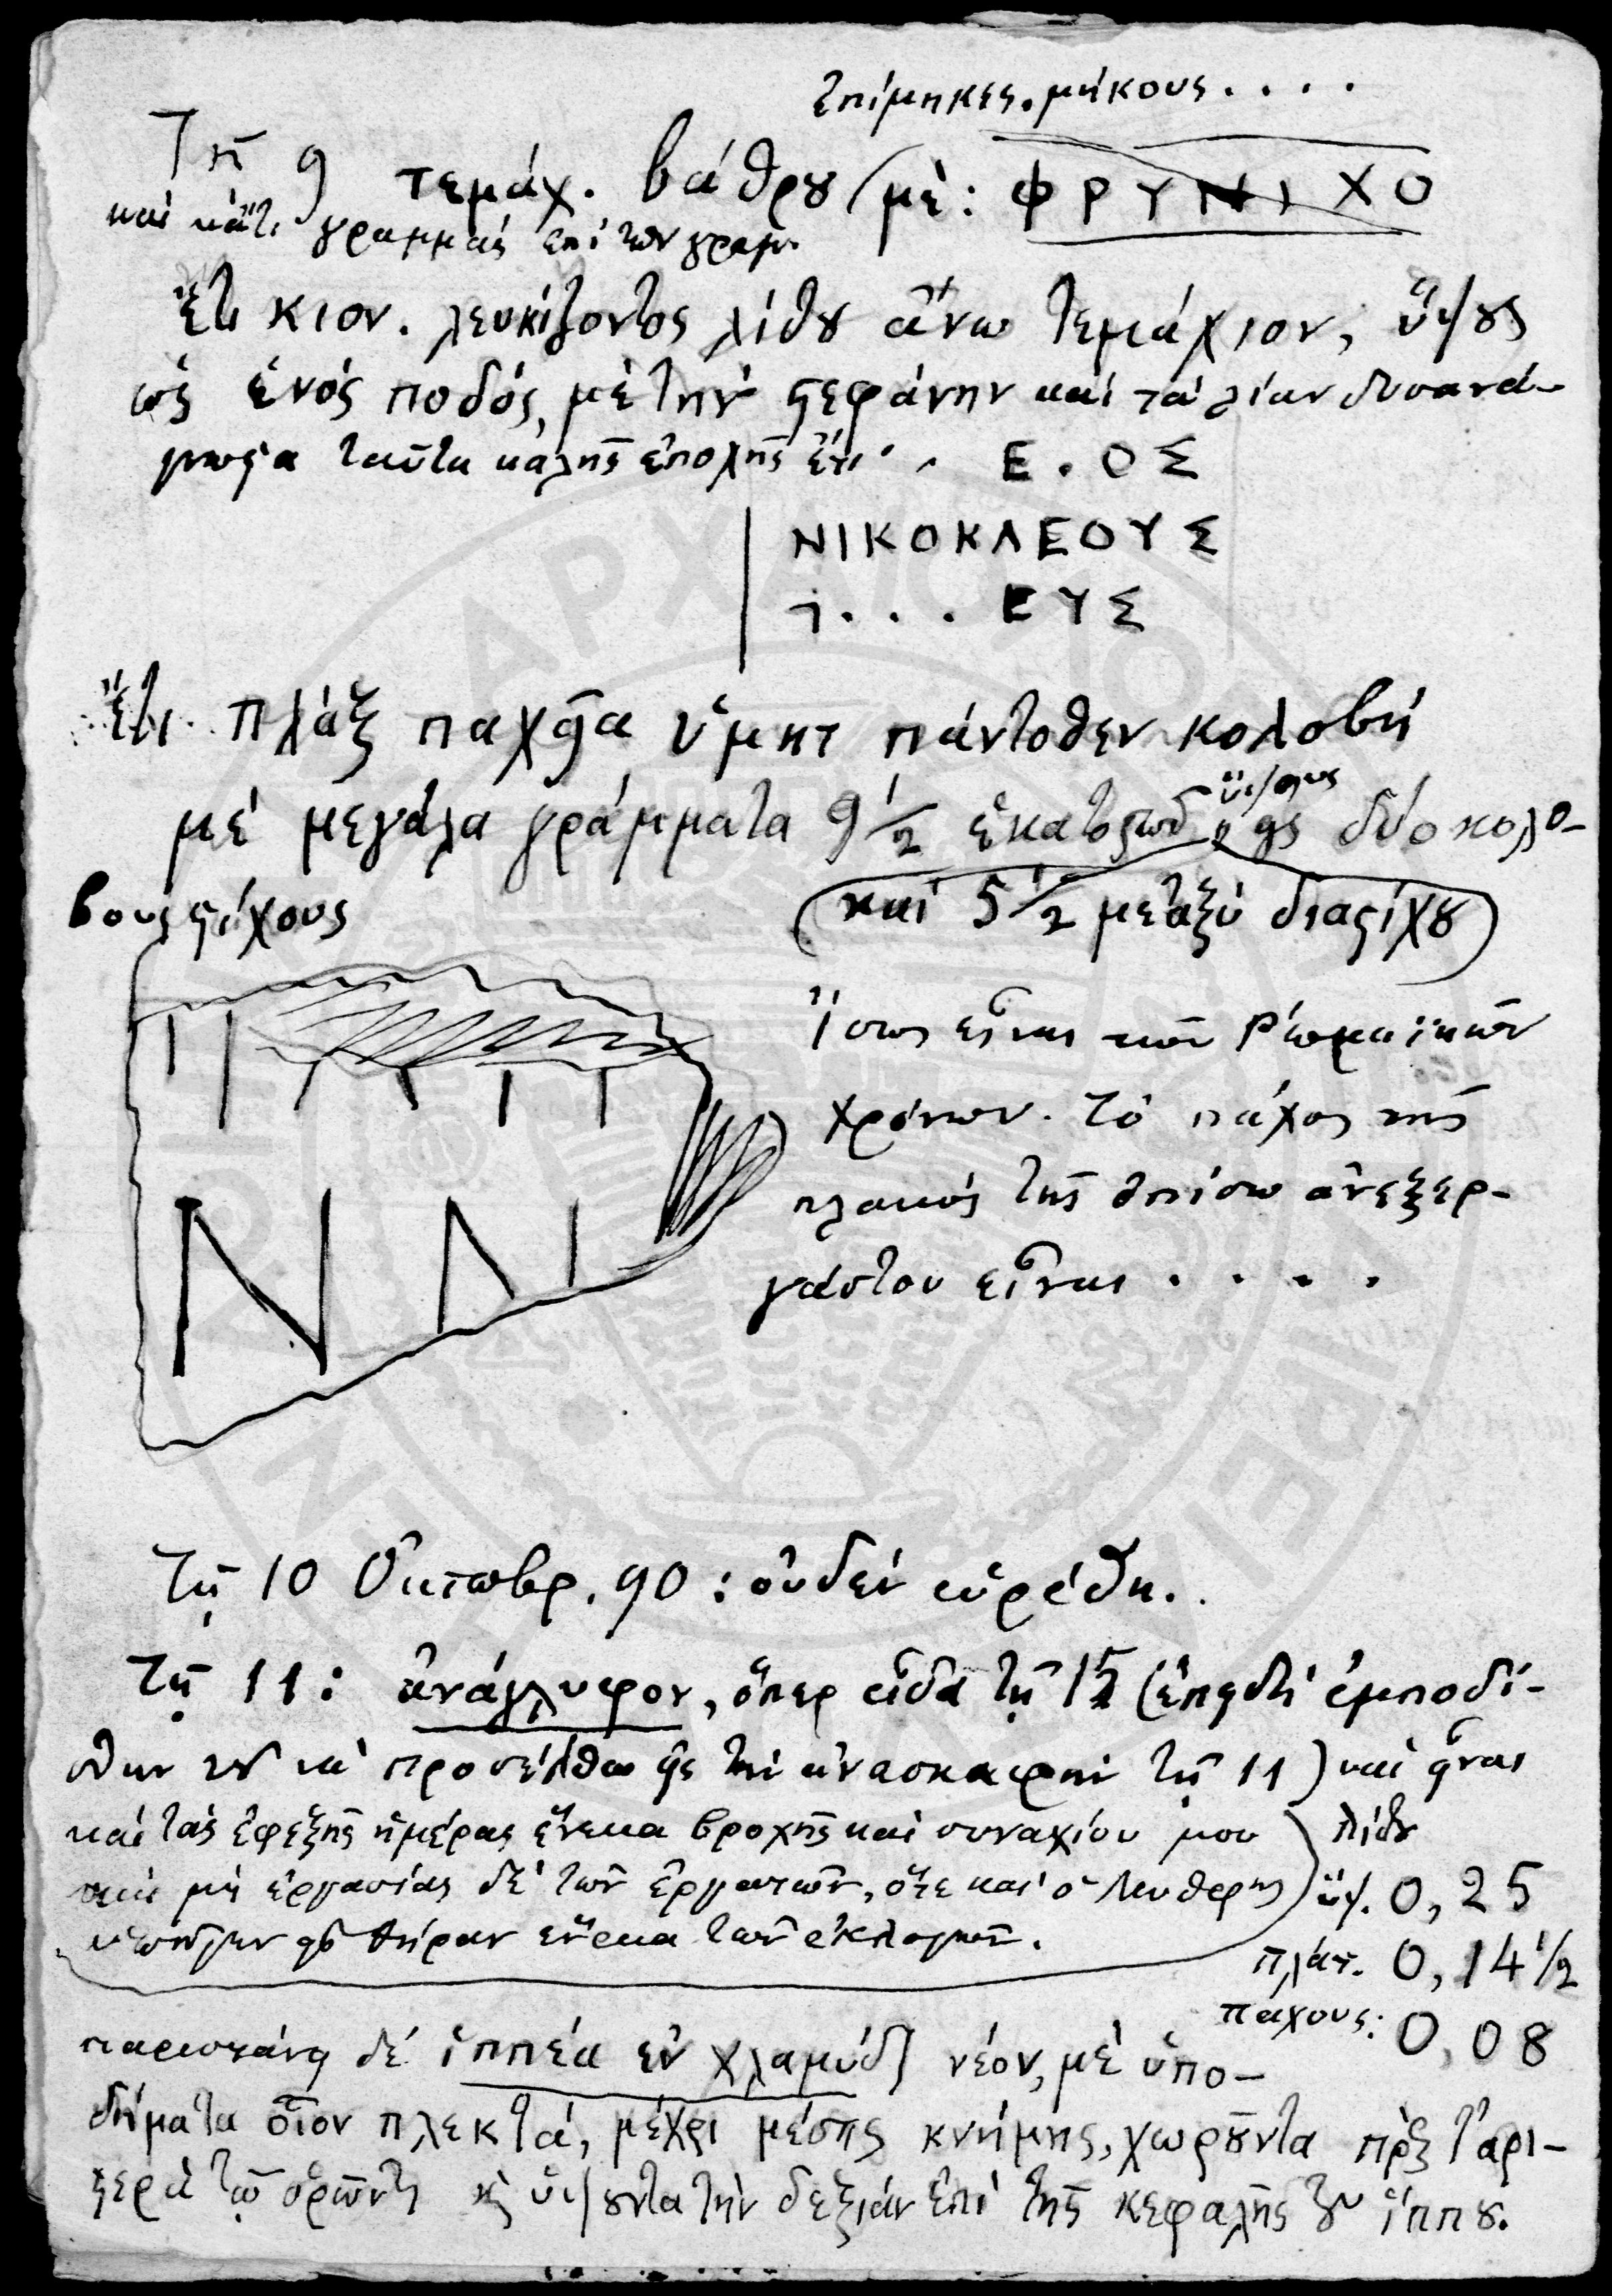 ἐπίμηκες. μήκους . . . .
Τῇ 9 τεμάχ. βάθρȣ (μὲ: ΦΡΥΝΙΧΟ
καὶ κάτι γραμμὰς ἐπὶ τῶν γραμ.
Ἔτι κιον. λευκίζοντος λίθȣ ἄνω τεμάχιον, ὕψȣς
ὡς ἑνὸς ποδός, μὲ τὴν ϛεφάνην καὶ τὰ λίαν δυσανά-
γνωϛα ταῦτα καλῆς ἐποχῆς ἔτι . . Ε . ΟΣ
ΝΙΚΟΚΛΕΟΥΣ
. . . ΕΥΣ
Ἔτι πλὰξ παχεῖα ὑμητ πάντοθεν κολοβὴ
μὲ μεγάλα γράμματα 9 1/2 ἑκατοϛῶν ὕψους εἰς δύο κολο-
βοὺς ϛίχους (καὶ 5 1/2 μεταξὺ διαϛίχȣ)
Ἴσως εἶναι τῶν Ῥωμαϊκῶν
χρόνων. Τὸ πάχος τῆς
πλακὸς τῆς ὀπίσω ἀνεξερ-
γάστου εἶναι . . . .
Ν Λ Ι
Τῇ 10 Ὀκτωβρ. 90 : οὐδὲν εὑρέθη.
Τῇ 11 : ἀνάγλυφον, ὅπερ εἶδα τῇ 15 (ἐπειδὴ ἐμποδί-
σθην τȣ νὰ προσέλθω εἰς τὴν ἀνασκαφὴν τῇ 11) καὶ εἶναι
καὶ τὰς ἐφεξῆς ἡμέρας ἕνεκα βροχῆς καὶ συναχίου μου λίθȣ
καὶ μὴ ἐργασίας δὲ τῶν ἐργατῶν, ὅτε καὶ ὁ Λευθέρης ὕψ. 0,25
ὑπῆγεν εἰς Θήραν ἕνεκα τῶν ἐκλογῶν. πλάτ. 0,14 1/2
πάχους: 0,08
παριστάνει δὲ ἱππέα ἐν χλαμύδι νέον, μὲ ὑπο-
δήματα οἷον πλεκτά, μέχρι μέσης κνήμης, χωρȣντα πρὸς τ' ἀρι-
ϛερὰ τῷ ὁρῶντι κ ὑψȣντα τὴν δεξιὰν ἐπὶ τῆς κεφαλῆς τȣ ἵππȣ.